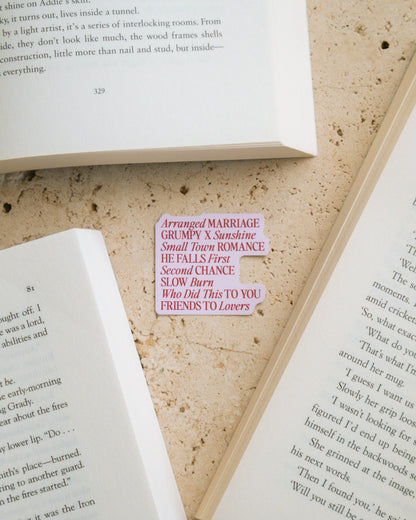 t shine on Addie's skin.
ky, it turns out, lives inside a tunnel.
by a light artist, it's a series of interlocking rooms. From
ide, they don't look like much, the wood frames shells
onstruction, little more than nail and stud, but inside—
s everything.
329
Arranged MARRIAGE
GRUMPY X Sunshine
Small Town ROMANCE
HE FALLS First
Second CHANCE
SLOW Burn
Who Did This TO YOU
FRIENDS TO Lovers
81
ought off. I
e was a lord,
abilities and
t be.
e early-morning
ng Grady.
ear about the fires
y lower lip. "Do . . .
mith's place—burned.
ring to another guard.
n the fires started."
t was the Iron
amid cricket
'So, what exact
'What do you
'That's what I'm
'I guess I want us
around her mug.
Slowly her grip loos
'I wasn't looking for
figured I'd end up being
himself in the backwoods s
She grinned at the image
his next words.
'Then I found you,' he said
'Will you still be